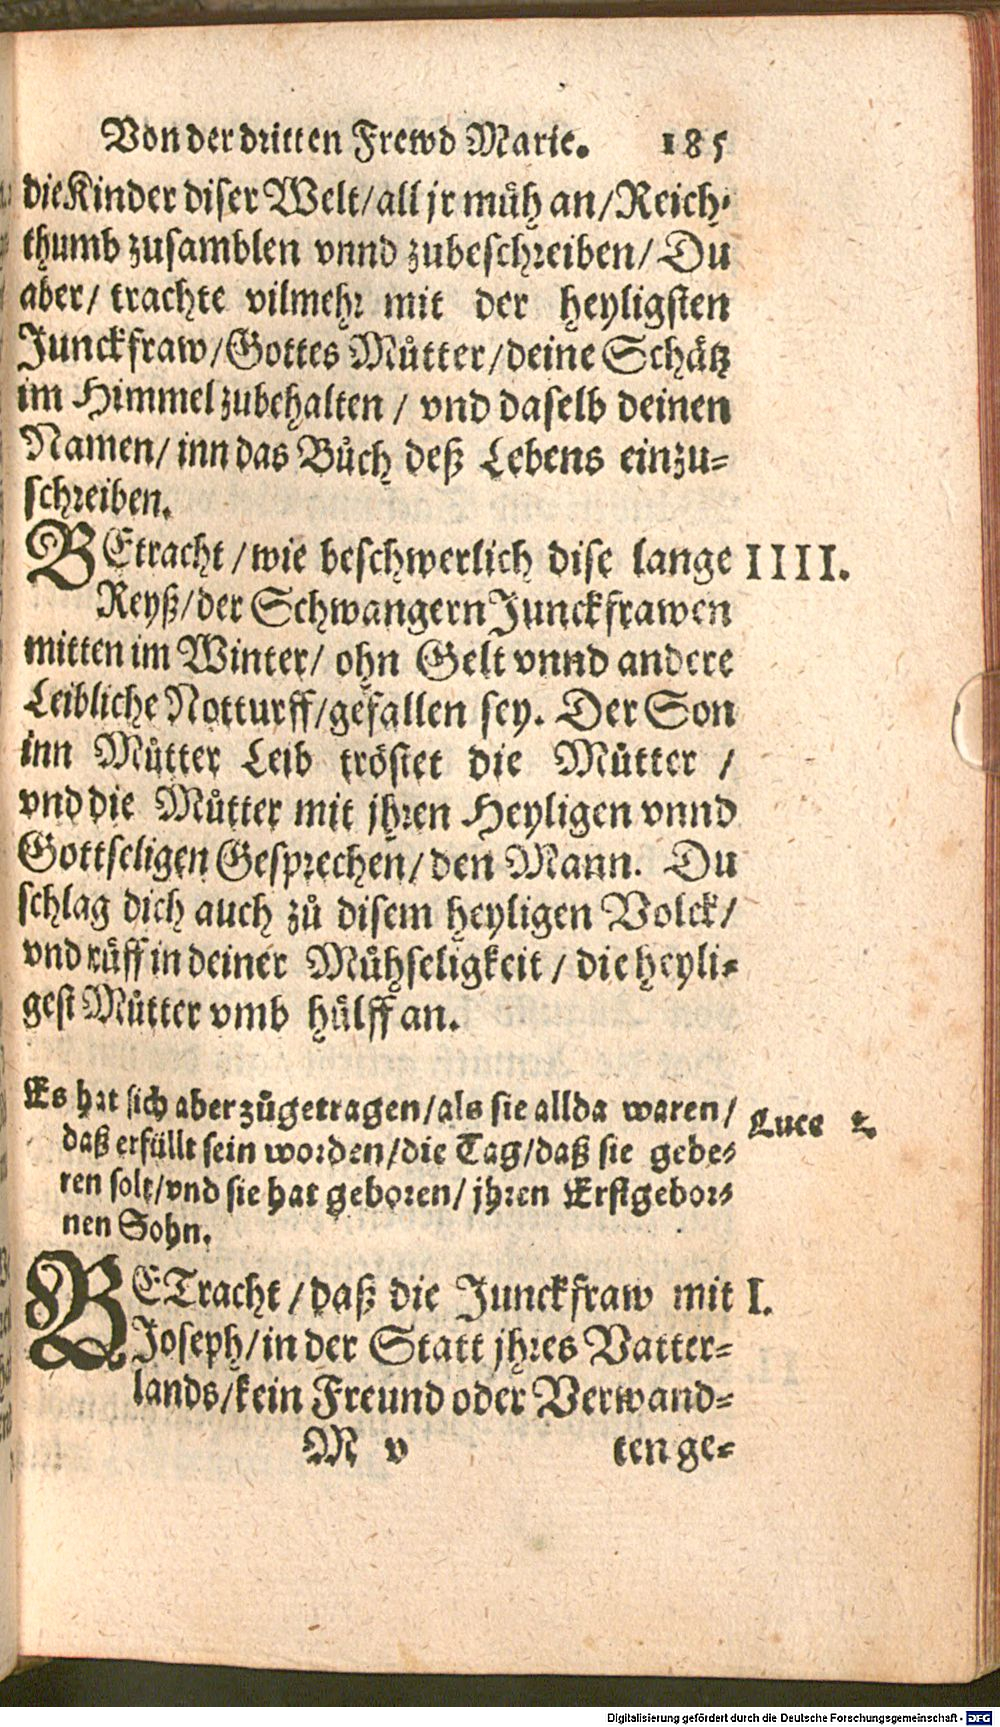 Von der dritten Frewd Marie. 185
die Kinder diser Welt/ all jr müh an/ Reich-
thumb zusamblen vnnd zubeschreiben/ Du
aber/ trachte vilmehr mit der heyligsten
Junckfraw/ Gottes Můtter/ deine Schätz
im Himmel zubehalten / vnd daselb deinen
Namen/ inn das Bůch deß Lebens einzu-
schreiben.
BEtracht / wie beschwerlich dise lange IIII.
Reyß/ der Schwangern Junckfrawen
mitten im Winter/ ohn Gelt vnnd andere
Leibliche Notturff/ gefallen sey. Der Son
inn Můtter Leib tröstet die Můtter /
vnd die Můtter mit jhren Heyligen vnnd
Gottseligen Gesprechen/ den Mann. Du
schlag dich auch zů disem heyligen Volck/
vnd růff in deiner Mühseligkeit / die heyli-
gest Můtter vmb hülff an.
Es hat sich aber zůgetragen/ als sie allda waren/ Luce 2.
daß erfüllt sein worden/ die Tag/ daß sie gebe-
ren solt/ vnd sie hat geboren/ jhren Erstgebor-
nen Sohn.
BETracht / daß die Junckfraw mit I.
Joseph/ in der Statt jhres Vatter-
lands/ kein Freund oder Verwand-
M v ten ge-
Digitalisierung gefördert durch die Deutsche Forschungsgemeinschaft - DFG